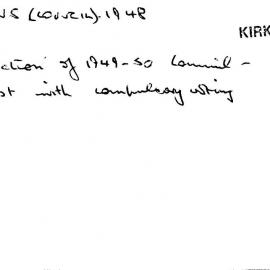 (COUNCIL). 1948
KIRK
of 1949-50 Council -
with compulsory voting